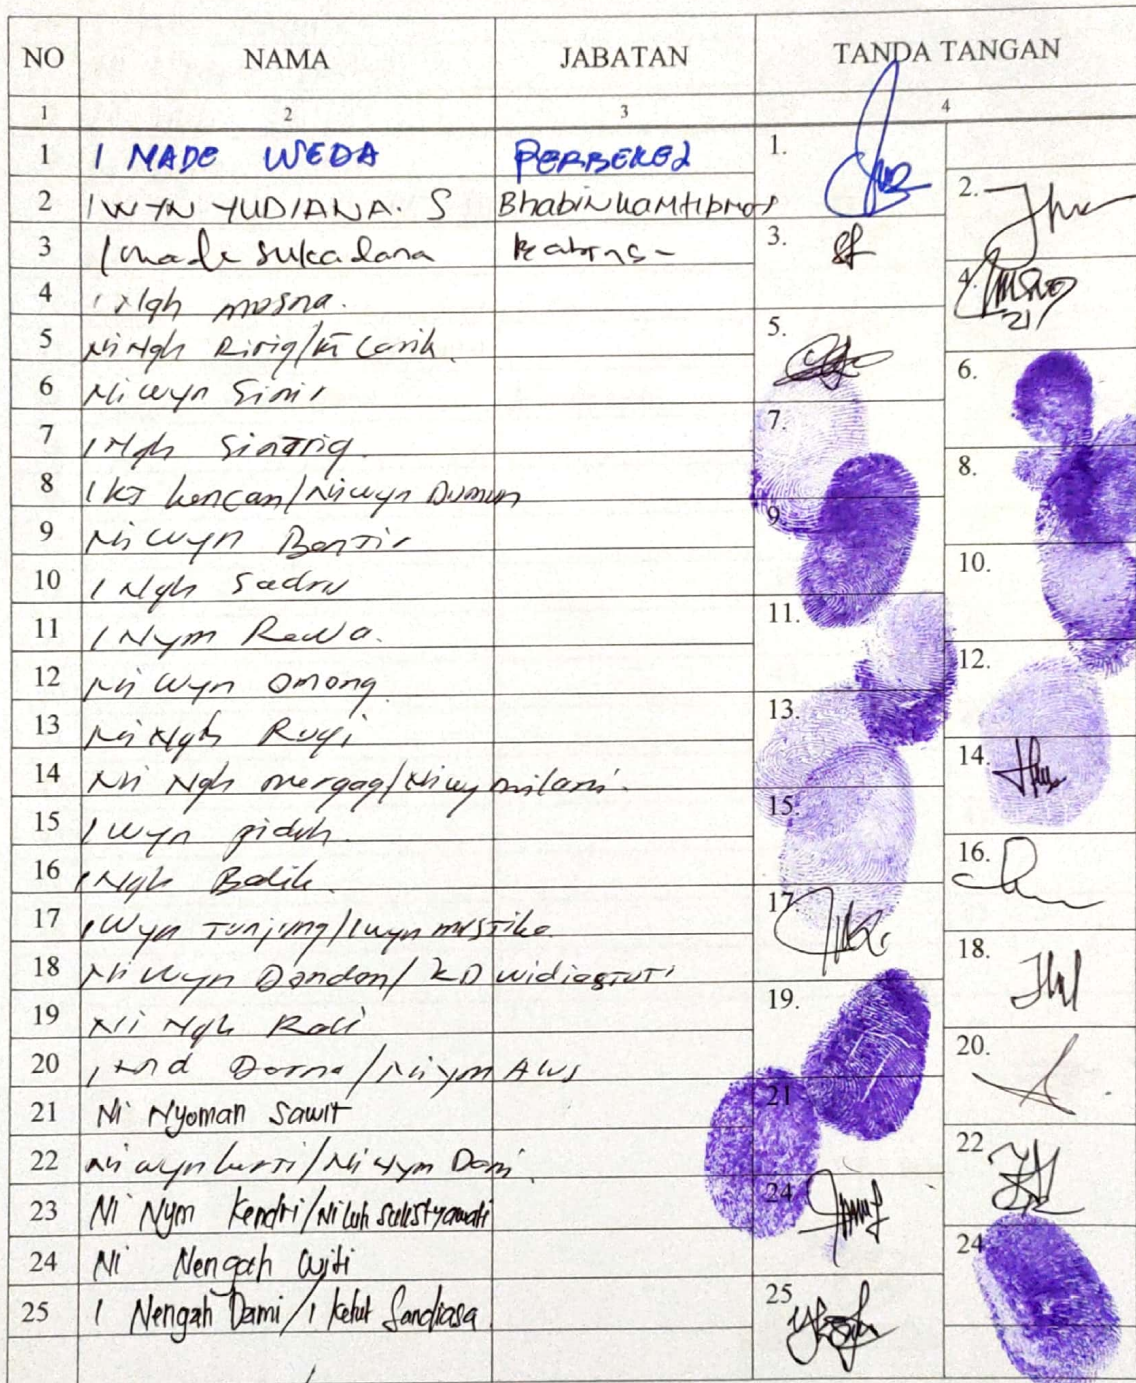 NO NAMA JABATAN TANDA TANGAN
1 2 3 4
1 I MADE WEDA PERBEKEL 1.
2 I WYN YUDIANA. S Bhabinkamtibmas 2.
3 I made sukadana 3.
4 I Ngh mosna. 4.
5 Ni Ngh Ririg/Kt Carik. 5.
6 Ni wyn Simir 6.
7 I Ngh Sinarig. 7.
8 I KT kencan/Ni wyn Dumun 8.
9 Ni wyn Bontir 9.
10 I Ngh Sadru 10.
11 I Nym Rewa. 11.
12 Ni Wyn omong 12.
13 Ni Ngh Rugi 13.
14 Ni Ngh mergag/Ni wy milani. 14.
15 I wyn giduh. 15.
16 I Ngh Bolik. 16.
17 I Wyn Tunjung/I wyn mustika 17.
18 Ni Wyn Dondon/ KD widiastuti 18.
19 Ni Ngh Roli 19.
20 Dorna/Ni nym Alus 20.
21 Ni Nyoman Sawit 21
22 Ni wyn Dani 22
23 Ni Nym Kendri/Ni luh sulistyawati 24
24 Ni Nengah Wiji 24
25 I Nengah Dami/I Ketut Sandiasa 25